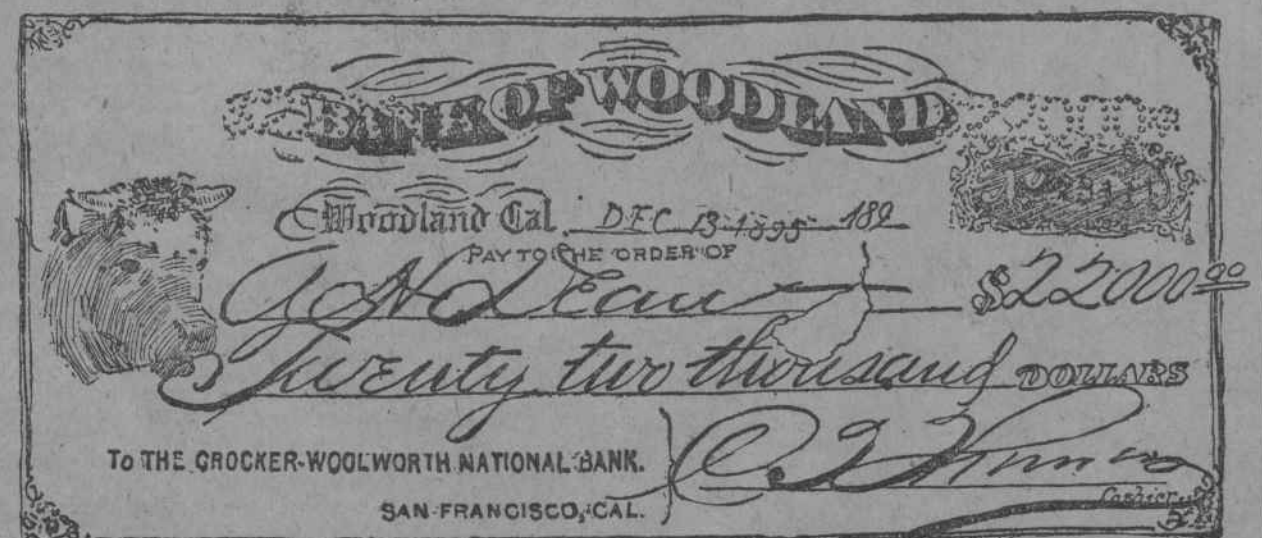 BANK OF WOODLAND
Woodland Cal. DEC 13 1895 189
PAY TO THE ORDER OF
A H Dean $22000 00
Twenty two thousand DOLLARS
TO THE CROCKER-WOOLWORTH NATIONAL BANK.
SAN FRANCISCO, CAL.
Cashier